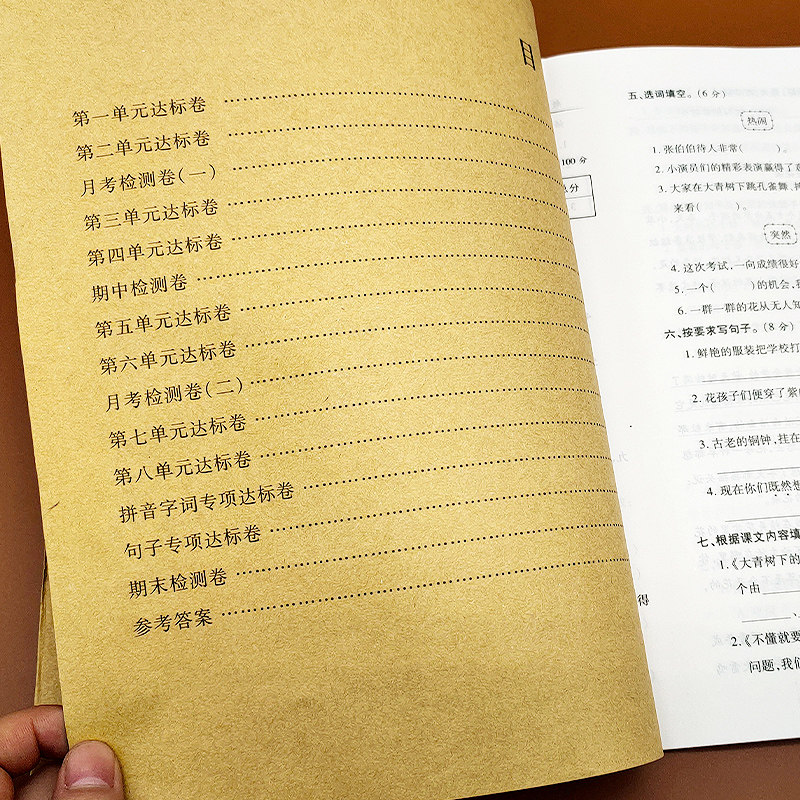 目
第一单元达标卷
第二单元达标卷
月考检测卷(一)
第三单元达标卷
第四单元达标卷
期中检测卷
第五单元达标卷
第六单元达标卷
月考检测卷(二)
第七单元达标卷
第八单元达标卷
拼音字词专项达标卷
句子专项达标卷
期末检测卷
参考答案
100 分
分
得
五、选词填空。(6 分)
热闹
1. 张伯伯待人非常(　　)。
2. 小演员们的精彩表演赢得了
3. 大家在大青树下跳孔雀舞、
来看(　　)。
突然
4. 这次考试,一向成绩很好
5. 一个(　　)的机会,
6. 一群一群的花从无人知
六、按要求写句子。(8 分)
1. 鲜艳的服装把学校打
2. 花孩子们便穿了紫
3. 古老的铜钟,挂在
4. 现在你们既然想
七、根据课文内容填
1.《大青树下的
个由
、
2.《不懂就要
问题,我们